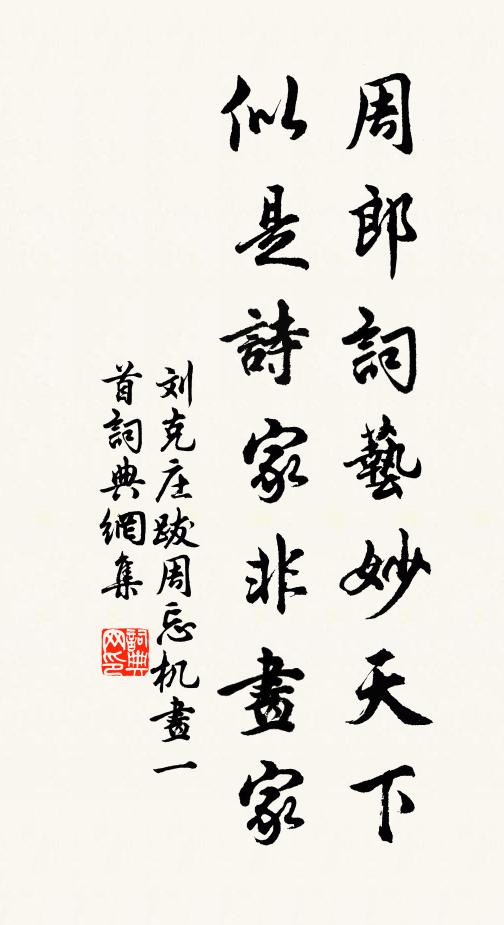 周郎詞藝妙天下
似是詩家非畫家
刘克庄跋周忘机畫一
首詞典網集
詞典网印